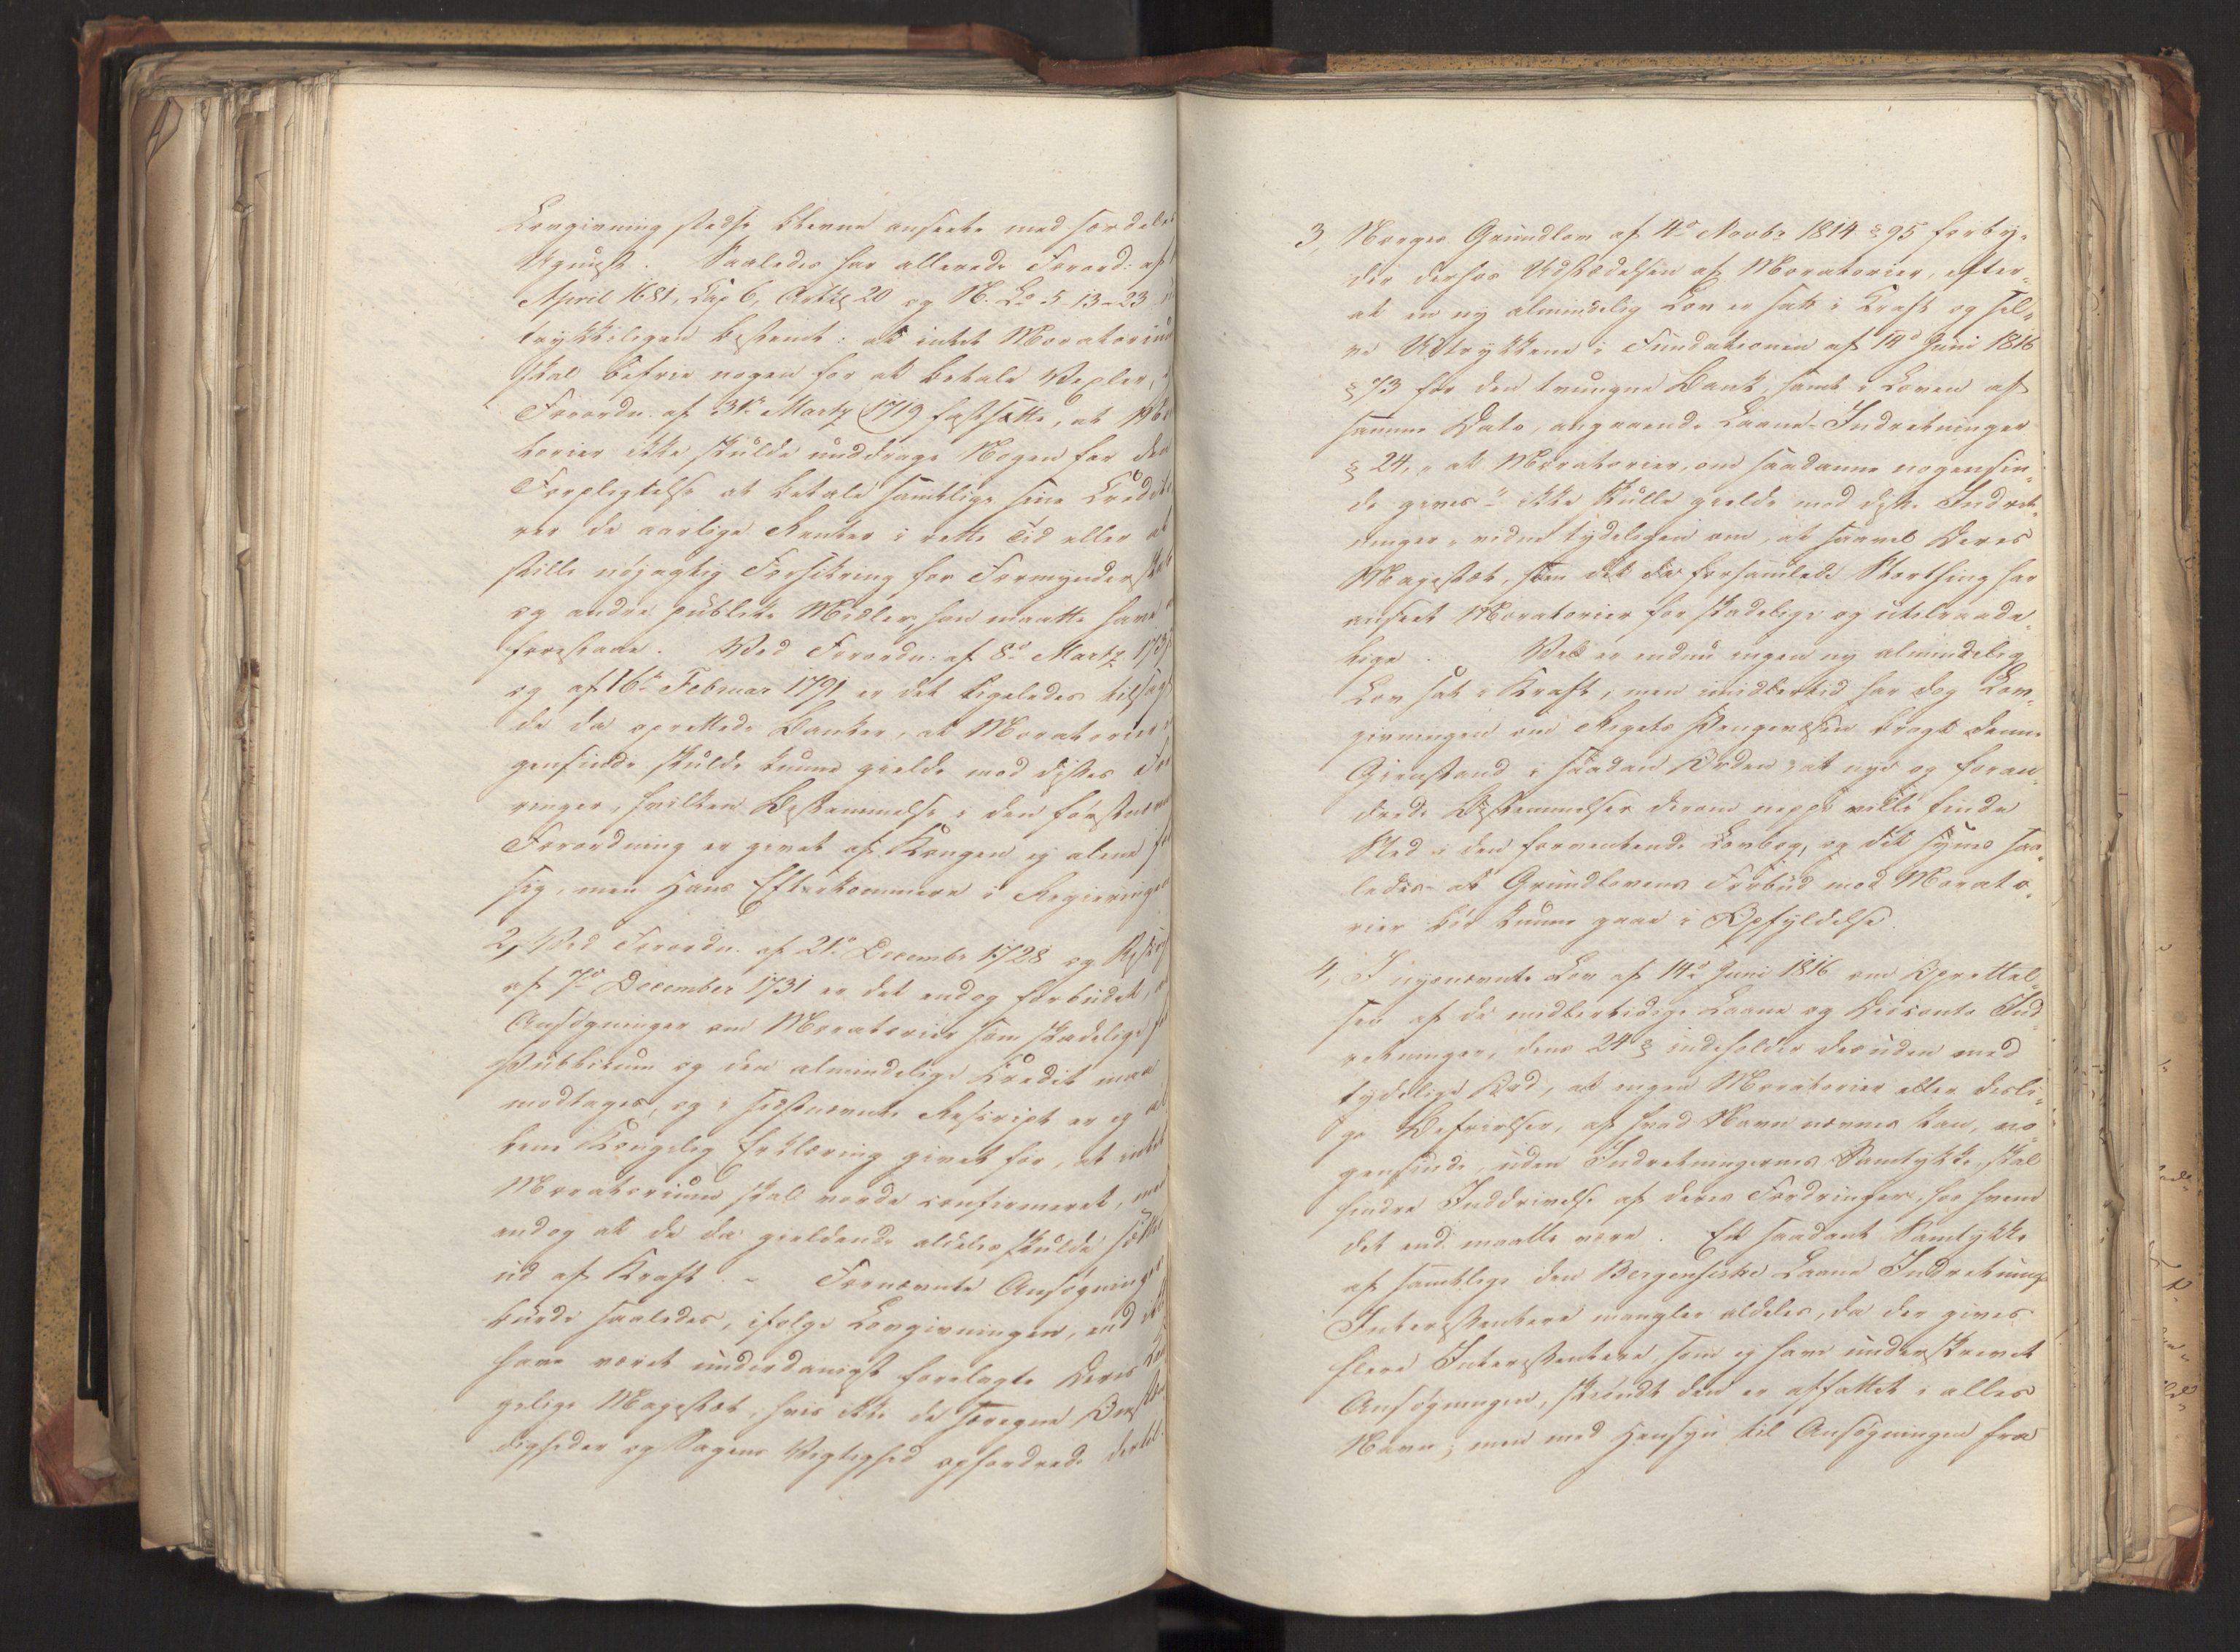 Lovgivning stedse blevne anseete med særdeles
Ugunst. Saaledes har allerede Forord: af
April 1681, Cap 6, Artkl 20 og N. Lo. 5-13-23
trykkeligen bestemt: at intet Moratorium
skal befrie nogen for at betale Vexler,
Forordn. af 31te Martz 1719 fastsatte, at
torier ikke skulde unddrage Nogen for den
Forpligtelse at betale samtlige sine Credito
rer de aarlige Renter i rette Tid eller at
stille nöjagtig Forsikring for Formynder
og andre publike Midler, han maatte have
forestaae. Ved Forordn: af 8de Martz
og af 16de Februar 1791 er det ligeledes tilsagt
de da oprettede Banker, at Moratorier
gensinde skulde kunne gielde mod disses For
ringer, hvilken Bestemmelse i den förstnævnte
Forordning er givet af Kongen ej alene for
sig, men Hans Efterkommere i Regieringen
2, Ved Forordn. af 21de Decembr 1728 og Rescr
af 7de December 1731 er det endog forbudet, at
Ansögninger om Moratorier som skadelige for
Publikum og den almindelige Credit maa
modtages, og i sidstnævnte Rescript er ej al
lene Kongelig Erklæring givet for, at intet
Moratorium skal vorde confirmeret, men
endog at de da gieldende aldeles skulde sættes
ud af Kraft. - Fornævnte Ansögninger
burde saaledes, ifölge Lovgivningen, end ikke
have været underdanigst forelagte Deres Kon
gelige Majestæt, hvis ikke de særegne Omstæn
digheder og Sagens Vigtighed opfordrede dertil.
3, Norges Grundlov af 4de Novbr 1814 § 95 forby-
der derhos Udstædelsen af Moratorier, efter-
at en ny almindelig Lov er sat i Kraft og sel-
ve Udtrykkene i Fundationen af 14de Juni 1816
§ 73 for den tvungne Bank, samt i Loven af
samme Dato, angaaende Laane-Indretninger
§ 24, "at Moratorier, om saadanne nogensin-
de gives" ikke skulle gielde mod disse Indret-
ninger, vidne tydeligen om, at saavel Deres
Majestæt, som det da forsamlede Storthing har
anseet Moratorier for skadelige og utilraade-
lige. Vel er endnu ingen ny almindelig
Lov sat i Kraft, men imidlertid har dog Lov-
givningen om Rigets Pengevæsen bragt denne
Gienstand i saadan Orden, at nye og foran-
drede Bestemmelser derom neppe ville finde
Sted i den forventende Lovbog, og det synes saa-
ledes at Grundlovens Forbud mod Morato-
rier bör kunne gaae i Opfyldelse.
4, I nysnævnte Lov af 14de Juni 1816 om Oprettel-
sen af de midlertidige Laane og Disconto Ind-
retninger, dens 24 § indeholder desuden med
tydelige Ord, at ingen Moratorier eller desli-
ge Befrielser, af hvad Navn nævnes kan, no-
gensinde, uden Indretningernes Samtykke, skal
hindre Inddrivelse af deres Fordringer, hos hvem
det end maatte være. Et saadant Samtykke
af samtlige den Bergenske Laane Indretnings
Interessentere mangler aldeles, da der gives
flere Interessentere, som ej have underskrevet
Ansögningen, skiöndt den er affattet i alles
Navn; men med Hensyn til Ansögningen fra